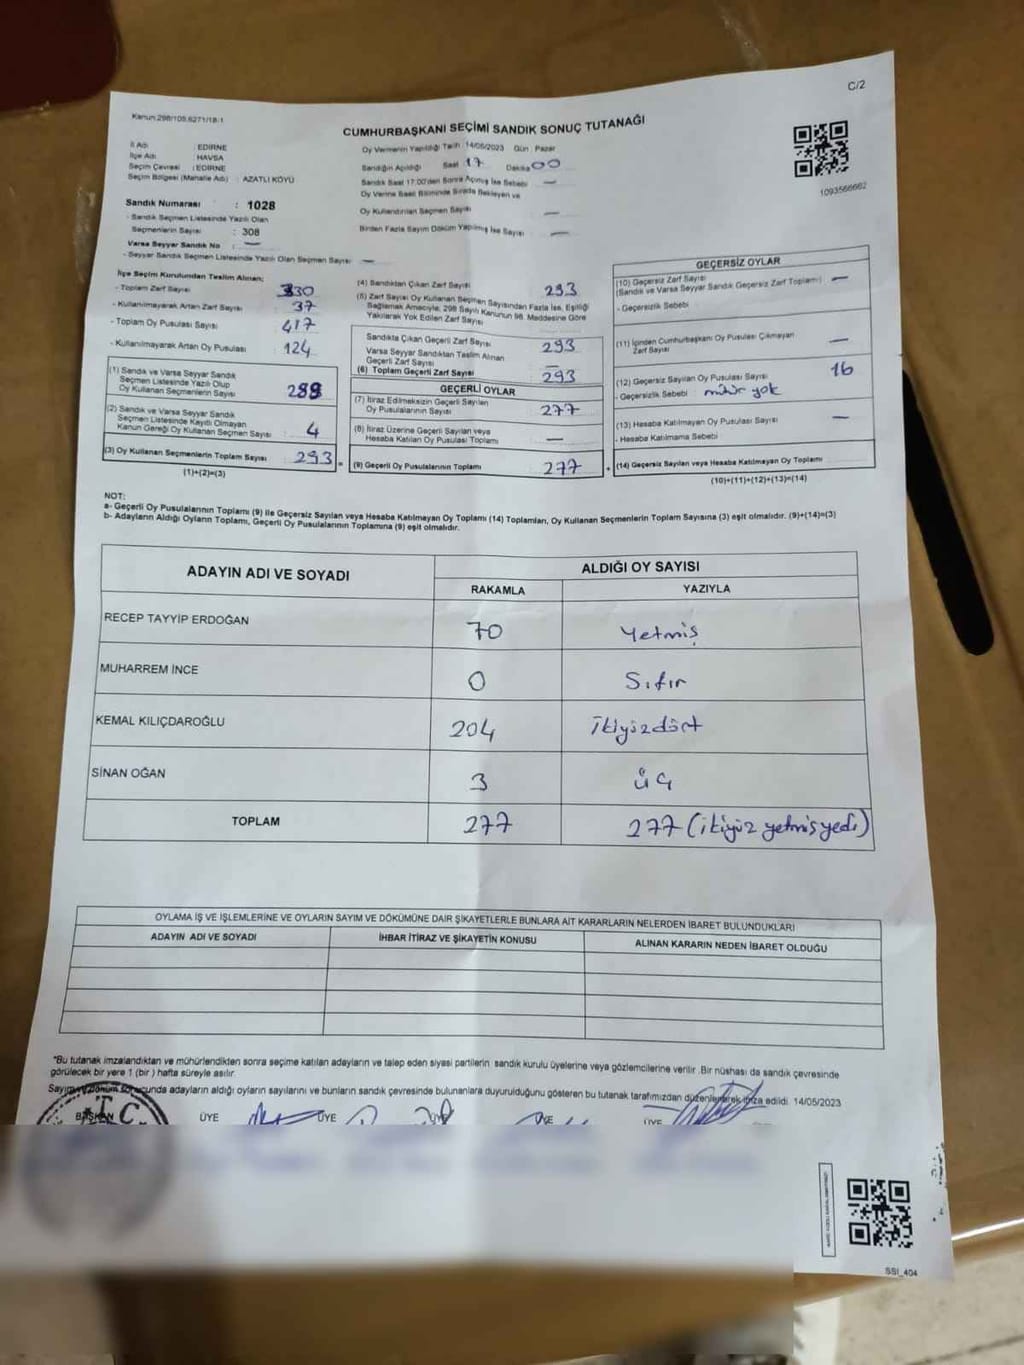 C/2
Kanun:298/105,6271/18/1
CUMHURBAŞKANI SEÇİMİ SANDIK SONUÇ TUTANAĞI
İl Adı : EDİRNE
İlçe Adı : HAVSA
Seçim Çevresi : EDİRNE
Seçim Bölgesi (Mahalle Adı) : AZATLI KÖYÜ
Sandık Numarası : 1028
- Sandık Seçmen Listesinde Yazılı Olan
Seçmenlerin Sayısı : 308
Varsa Seyyar Sandık No : —
- Seyyar Sandık Seçmen Listesinde Yazılı Olan Seçmen Sayısı —
Oy Vermenin Yapıldığı Tarih 14/05/2023 Gün : Pazar
Sandığın Açıldığı Saat 17 Dakika 00
Sandık Saat 17:00'den Sonra Açılmış İse Sebebi —
Oy Verme Saati Bitiminde Sırada Bekleyen ve
Oy Kullandırılan Seçmen Sayısı —
Birden Fazla Sayım Döküm Yapılmış İse Sayısı —
1093566662
İlçe Seçim Kurulundan Teslim Alınan;
- Toplam Zarf Sayısı 330
- Kullanılmayarak Artan Zarf Sayısı : 37
- Toplam Oy Pusulası Sayısı : 417
- Kullanılmayarak Artan Oy Pusulası : 124
(1) Sandık ve Varsa Seyyar Sandık
Seçmen Listesinde Yazılı Olup
Oy Kullanan Seçmenlerin Sayısı : 289
(2) Sandık ve Varsa Seyyar Sandık
Seçmen Listesinde Kayıtlı Olmayan
Kanun Gereği Oy Kullanan Seçmen Sayısı : 4
(3) Oy Kullanan Seçmenlerin Toplam Sayısı : 293 =
(1)+(2)=(3)
(4) Sandıktan Çıkan Zarf Sayısı : 293
(5) Zarf Sayısı Oy Kullanan Seçmen Sayısından Fazla İse, Eşitliği
Sağlamak Amacıyla, 298 Sayılı Kanunun 98. Maddesine Göre
Yakılarak Yok Edilen Zarf Sayısı
Sandıkta Çıkan Geçerli Zarf Sayısı : 293
Varsa Seyyar Sandıktan Teslim Alınan
Geçerli Zarf Sayısı : —
(6) Toplam Geçerli Zarf Sayısı : 293
GEÇERLİ OYLAR
(7) İtiraz Edilmeksizin Geçerli Sayılan
Oy Pusulalarının Sayısı : 277
(8) İtiraz Üzerine Geçerli Sayılan veya
Hesaba Katılan Oy Pusulası Toplamı : —
(9) Geçerli Oy Pusulalarının Toplamı : 277 +
GEÇERSİZ OYLAR
(10) Geçersiz Zarf Sayısı
(Sandık ve Varsa Seyyar Sandık Geçersiz Zarf Toplamı) : —
- Geçersizlik Sebebi :
(11) İçinden Cumhurbaşkanı Oy Pusulası Çıkmayan
Zarf Sayısı : —
(12) Geçersiz Sayılan Oy Pusulası Sayısı : 16
- Geçersizlik Sebebi : mühür yok
(13) Hesaba Katılmayan Oy Pusulası Sayısı : —
- Hesaba Katılmama Sebebi :
(14) Geçersiz Sayılan veya Hesaba Katılmayan Oy Toplamı
(10)+(11)+(12)+(13)=(14)
NOT:
a- Geçerli Oy Pusulalarının Toplamı (9) ile Geçersiz Sayılan veya Hesaba Katılmayan Oy Toplamı (14) Toplamları, Oy Kullanan Seçmenlerin Toplam Sayısına (3) eşit olmalıdır. (9)+(14)=(3)
b- Adayların Aldığı Oyların Toplamı, Geçerli Oy Pusulalarının Toplamına (9) eşit olmalıdır.
ADAYIN ADI VE SOYADI ALDIĞI OY SAYISI
RAKAMLA YAZIYLA
RECEP TAYYİP ERDOĞAN 70 Yetmiş
MUHARREM İNCE 0 Sıfır
KEMAL KILIÇDAROĞLU 204 İkiyüzdört
SİNAN OĞAN 3 üç
TOPLAM 277 277 (ikiyüz yetmişyedi)
OYLAMA İŞ VE İŞLEMLERİNE VE OYLARIN SAYIM VE DÖKÜMÜNE DAİR ŞİKAYETLERLE BUNLARA AİT KARARLARIN NELERDEN İBARET BULUNDUKLARI
ADAYIN ADI VE SOYADI İHBAR İTİRAZ VE ŞİKAYETİN KONUSU ALINAN KARARIN NEDEN İBARET OLDUĞU
*Bu tutanak imzalandıktan ve mühürlendikten sonra seçime katılan adayların ve talep eden siyasi partilerin sandık kurulu üyelerine veya gözlemcilerine verilir .Bir nüshası da sandık çevresinde
görülecek bir yere 1 (bir ) hafta süreyle asılır.
Sayım ve döküm sonucunda adayların aldığı oyların sayılarını ve bunların sandık çevresinde bulunanlara duyurulduğunu gösteren bu tutanak tarafımızdan düzenlenerek imza edildi. 14/05/2023
T.C.
BAŞKAN ÜYE ÜYE ÜYE ÜYE ÜYE
SSI_404